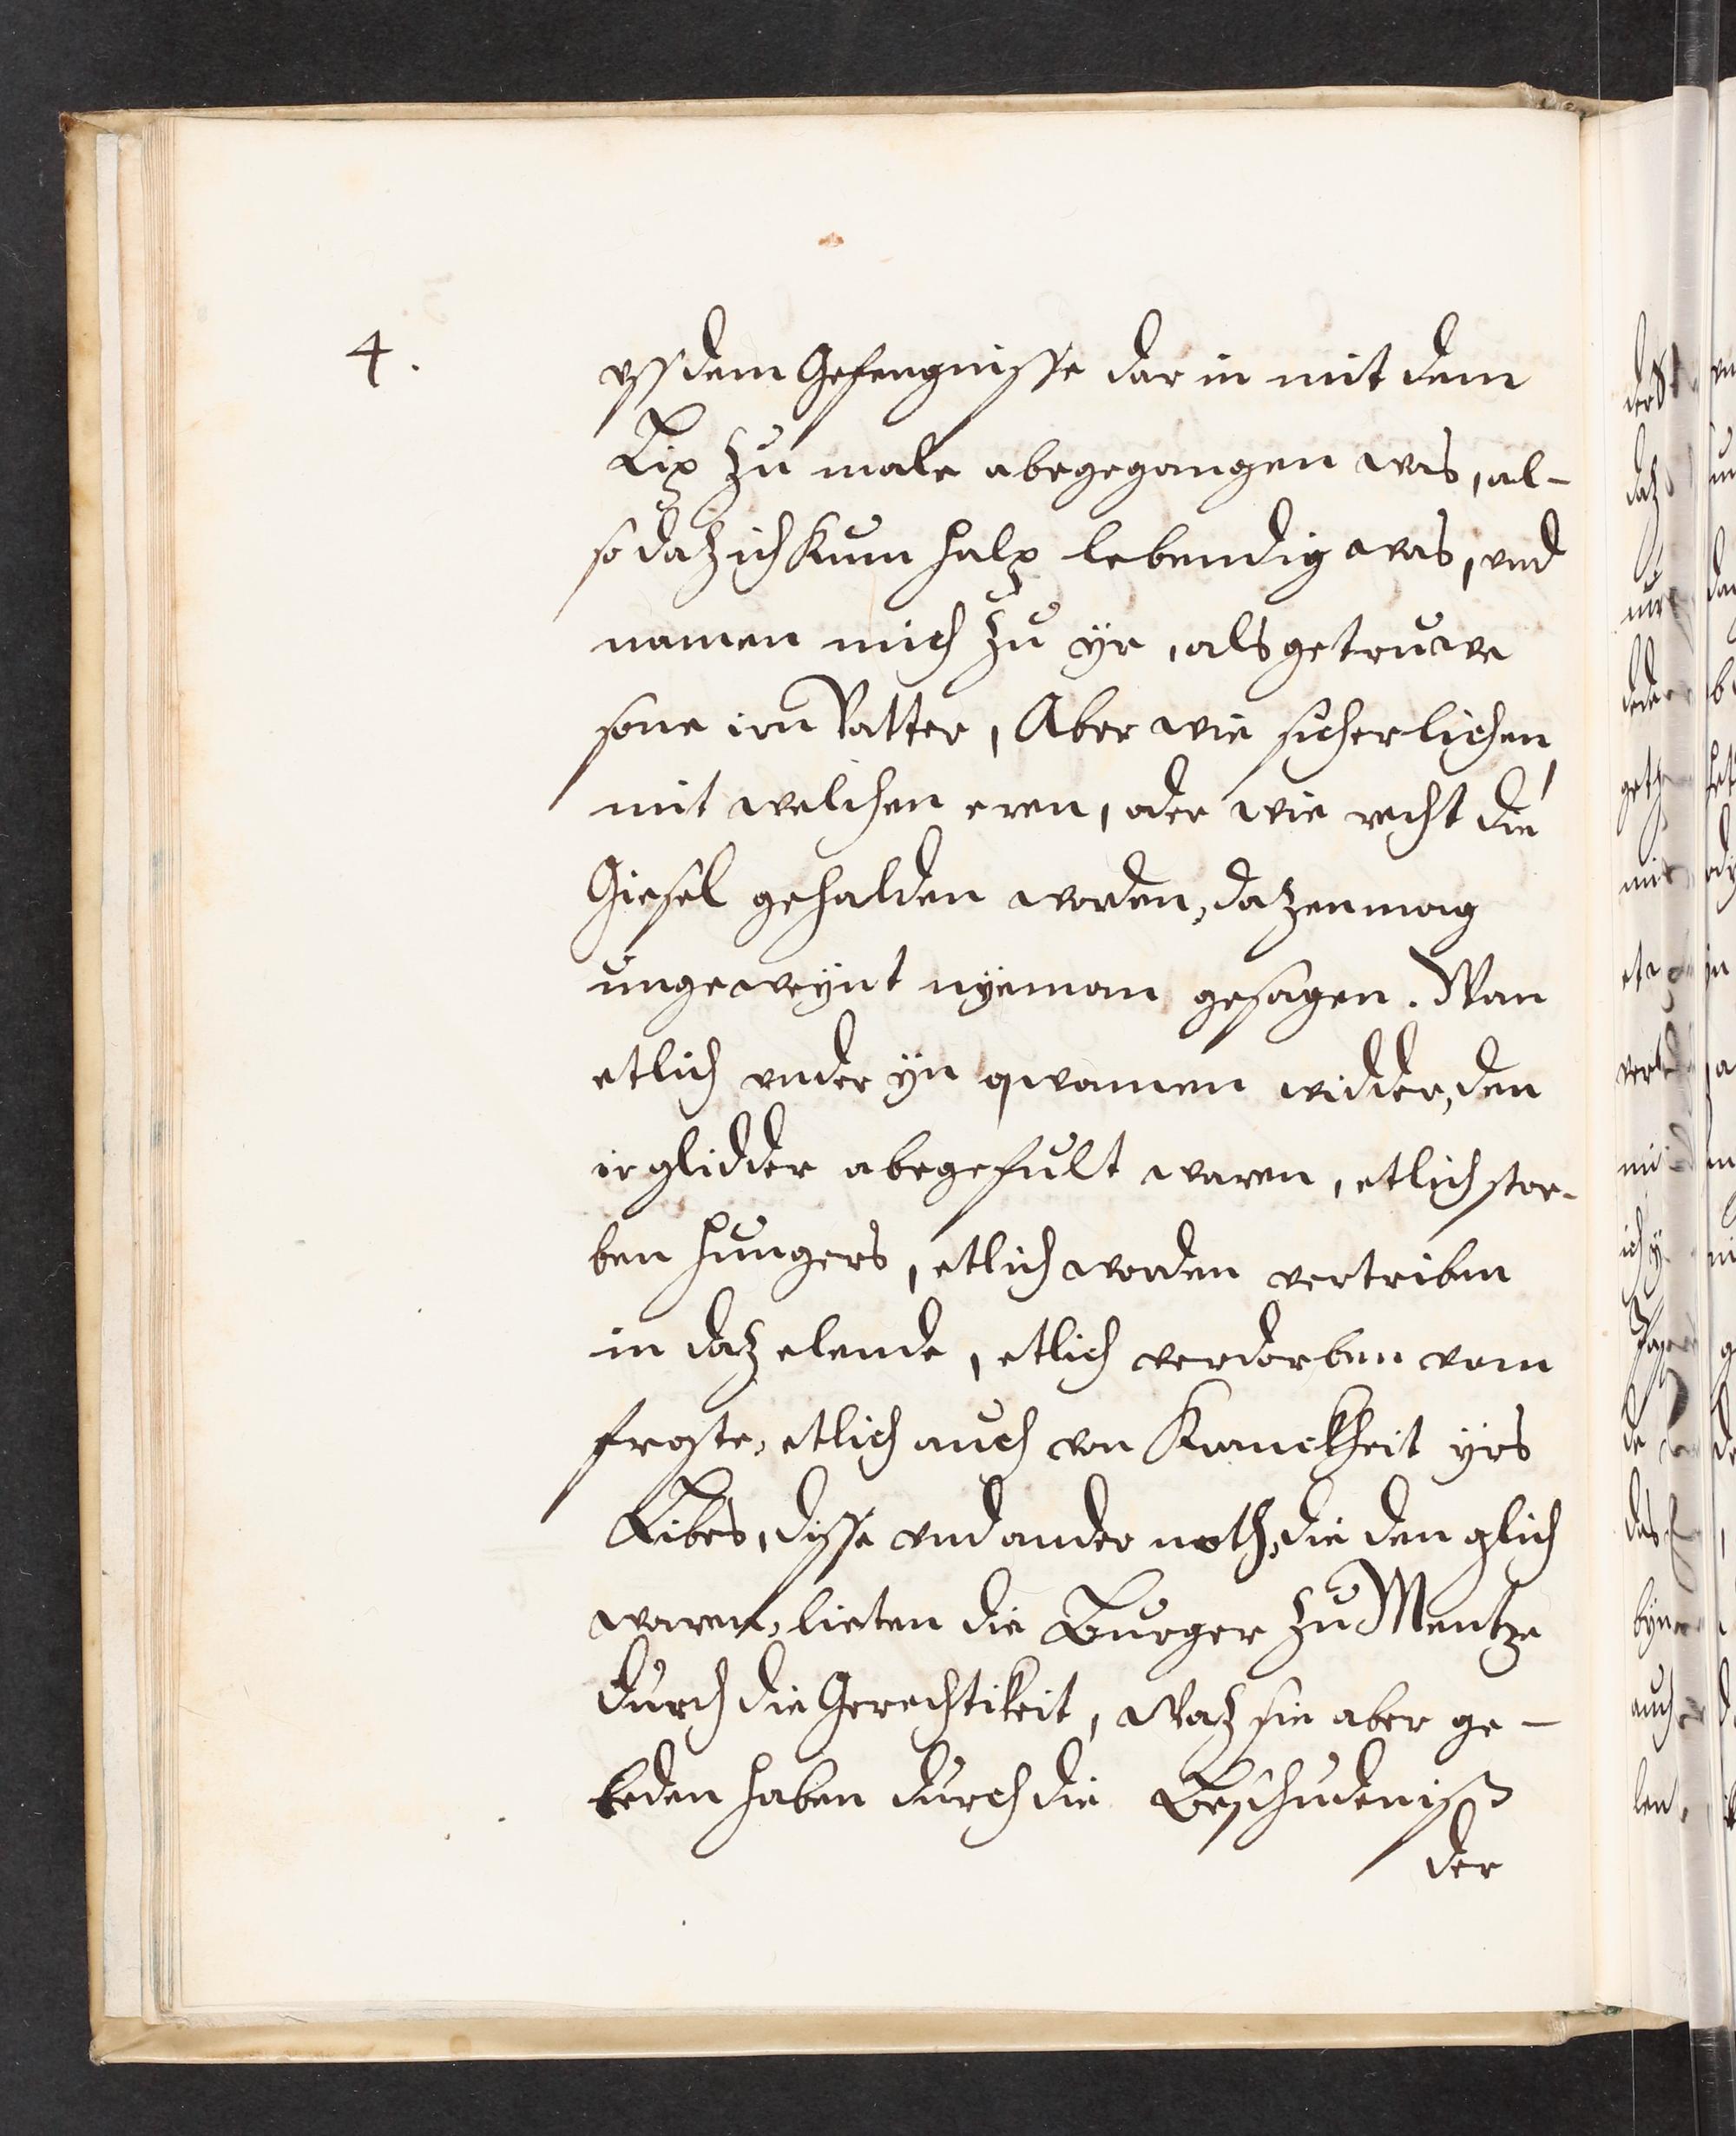 4.
vssdem Gefengnisse dar in mit dem
Lip zu male abegegangen was, al-
so datz ich kum halp lebendig was, vnd
namen mich zu yr, als getruwe
sone irn Vatter, Aber wie sicherlichen,
mit welichen eren, oder wie recht die
Giesel gehalden worden, datz enmag
ungeweynt nyeman gesagen. Wan
etlich vnder yn qwamen widder, den
ir glidder abegefult waren, etlich stor-
ben hungers, etlich worden vertriben
in datz elende, etlich verdorben vom
froste, etlich auch von Kranckheit yrs
Libes, disse vnd ander noth, die den glich
waren, lieten die Burger zu Mentze
durch die Gerechtikeit, Watz sie aber ge-
leden haben durch die Beschudeniß
der